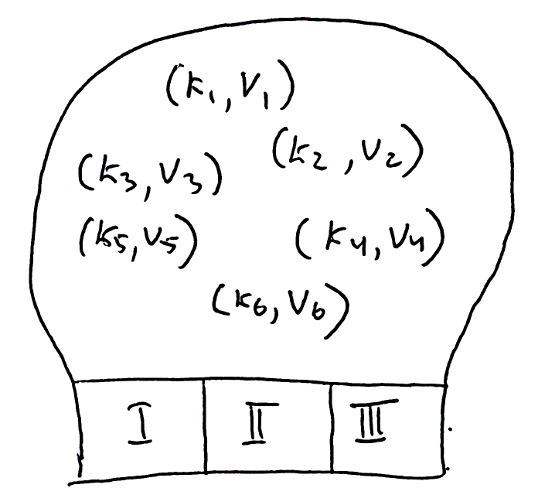 (k1, V1)
(k2, V2)
(k3, V3)
(k5, V5)
(k4, V4)
(k6, V6)
I II III